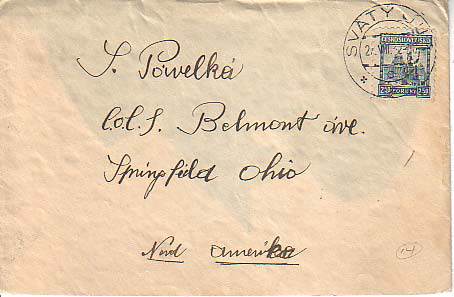 SVATÝ J
ČESKOSLOVENSKO
2.50 2.50
S. Powelká
Belmont áve.
Springfield Ohio
Nord Amerika
14